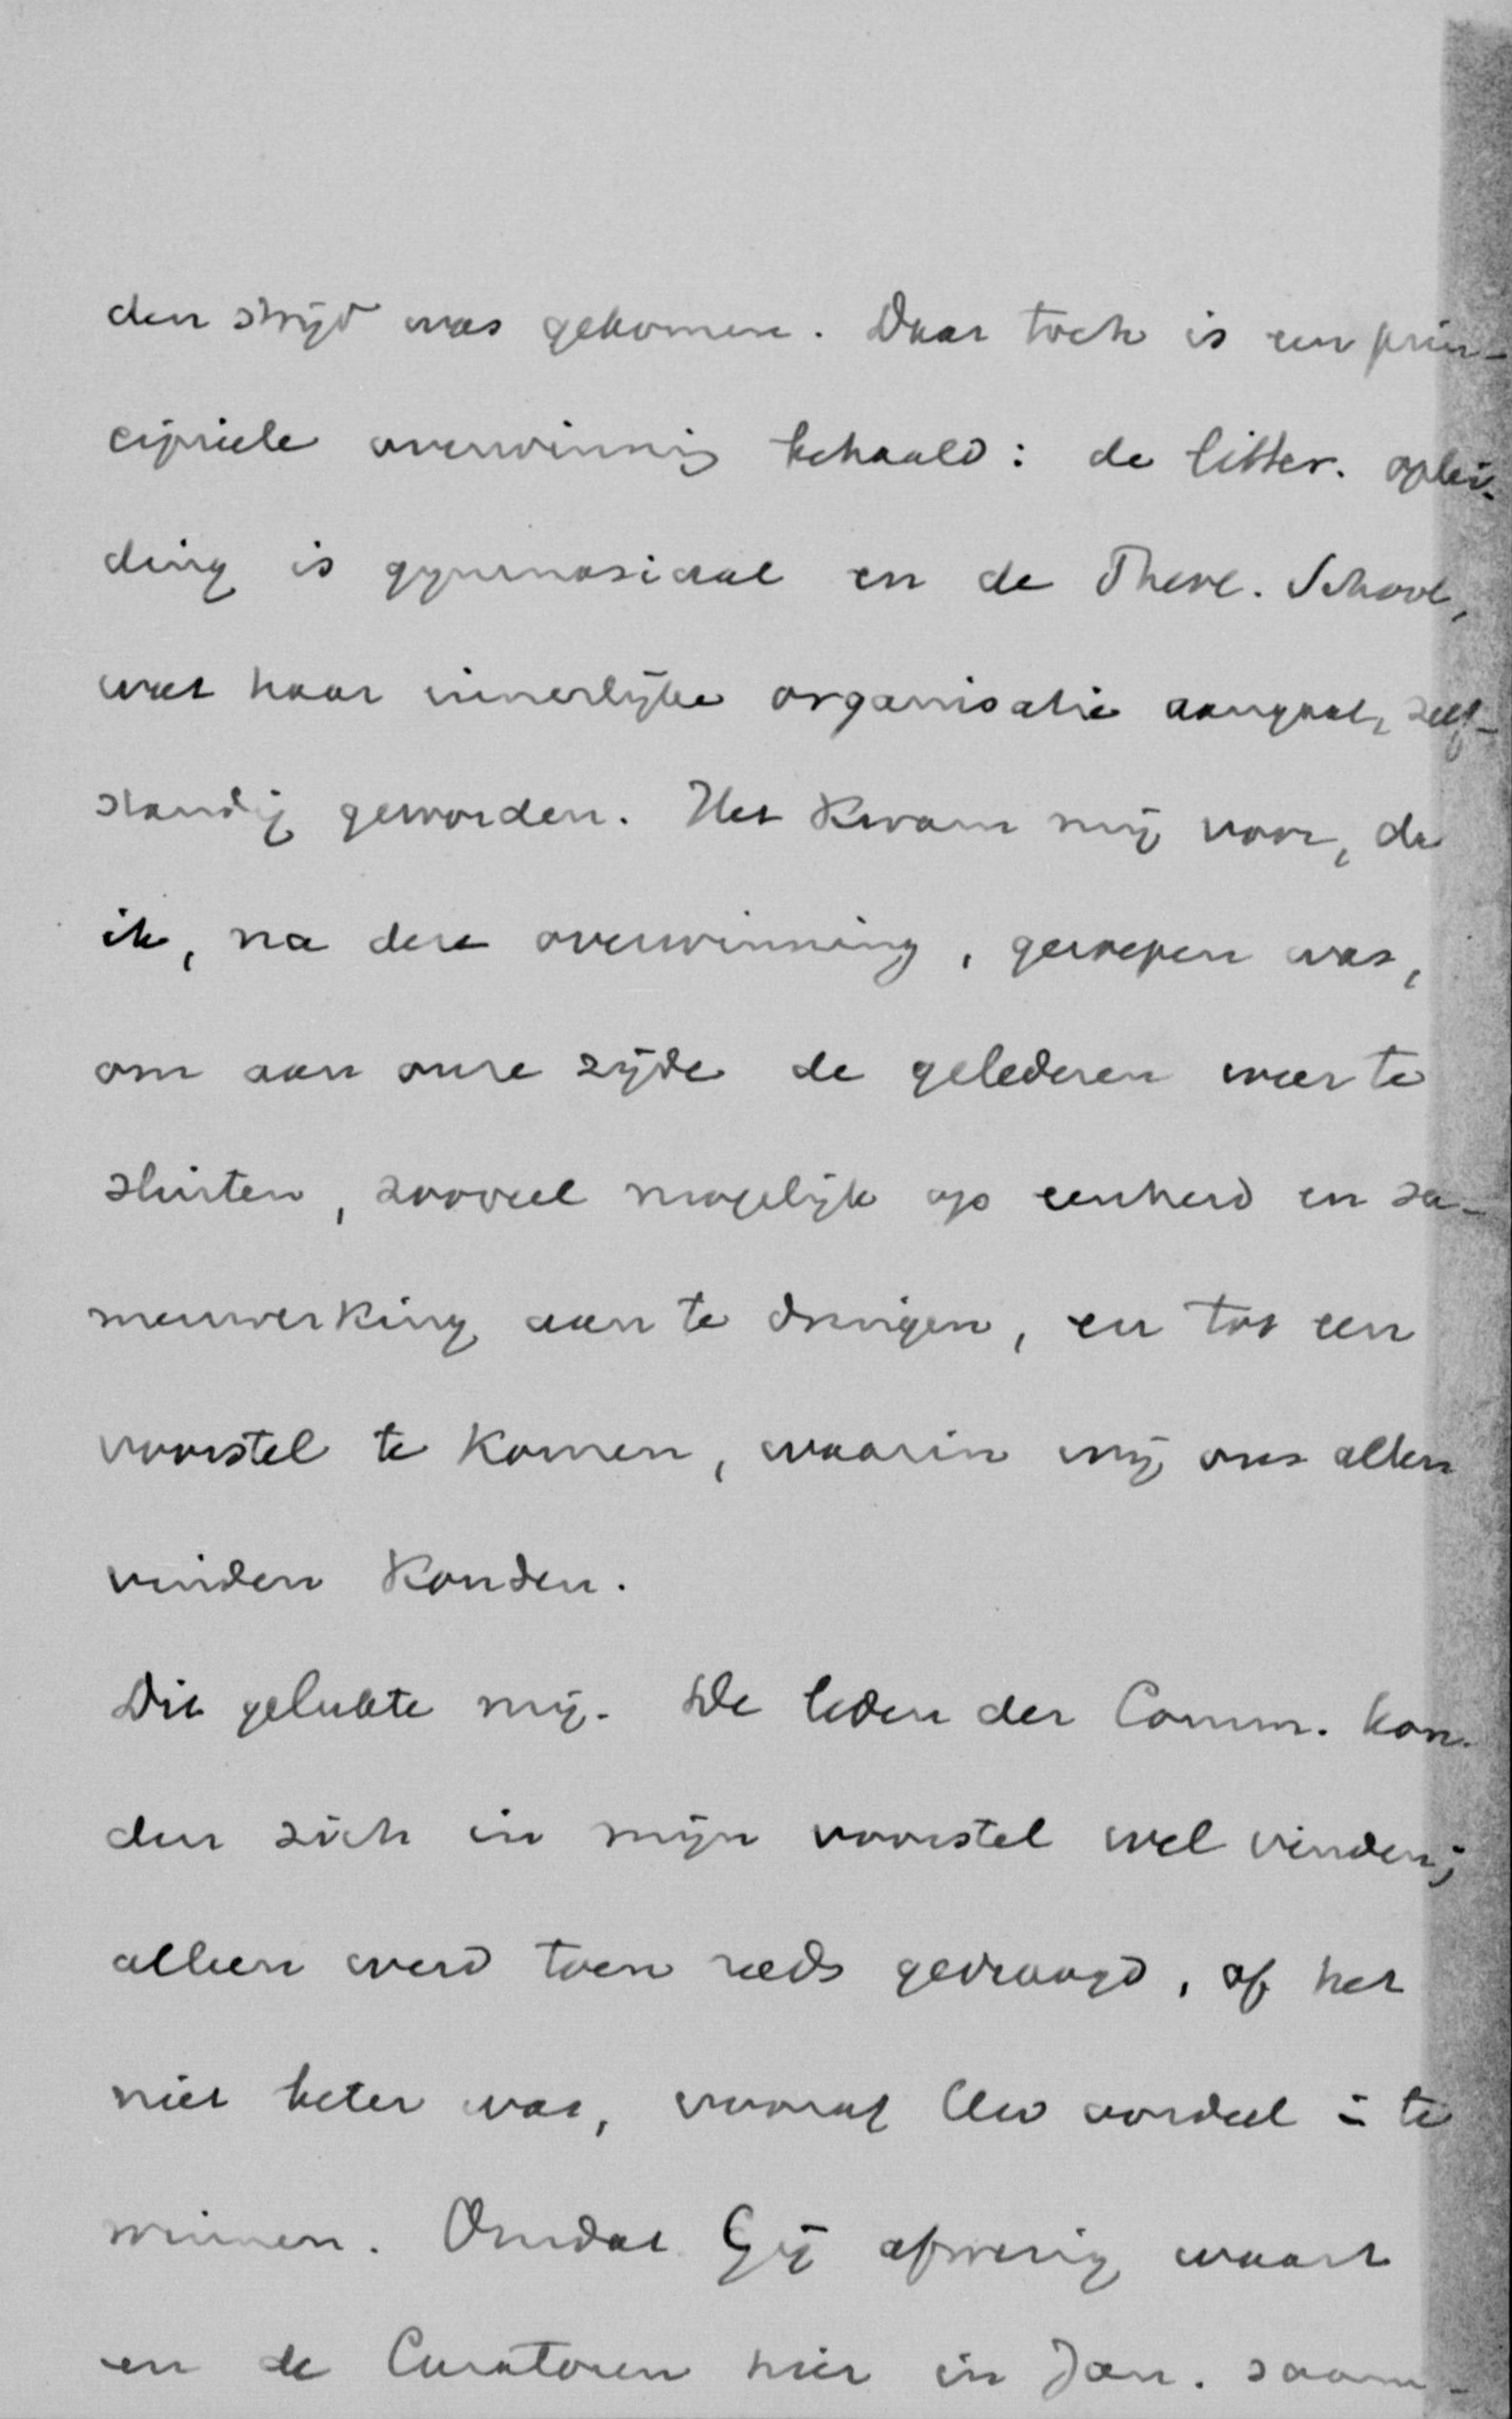 den strijd was gekomen. Daar toch is een prin-
cipiele overwinning behaald: de litter. oplei-
ding is gymnasiaal en de Theol. School,
wat haar innerlijke organisatie aangaat, zelf-
standig geworden. Het kwam mij voor, da
ik, na deze overwinning, geroepen was,
om aan onze zijde de gelederen weer te
sluiten, zooveel mogelijk op eenheid en sa-
menwerking aan te dringen, en tot een
voorstel te komen, waarin wij ons allen
vinden konden.
Dit gelukte mij. De leden der Comm. kon-
den zich in mijn voorstel wel vinden;
alleen werd toen reeds gevraagd, of het
niet beter was, vooraf Uw oordeel in te
winnen. Omdat Gij afwezig waart
en de Curatoren hier in Jan. saam-